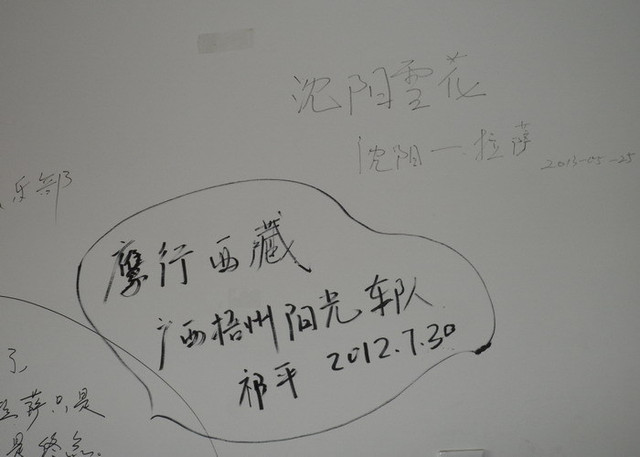 沈阳雪花
沈阳—拉萨 2013-05-25
乐部
鹰行西藏
广西梧州阳光车队
祁平 2012.7.30
了
拉萨只是
是终点